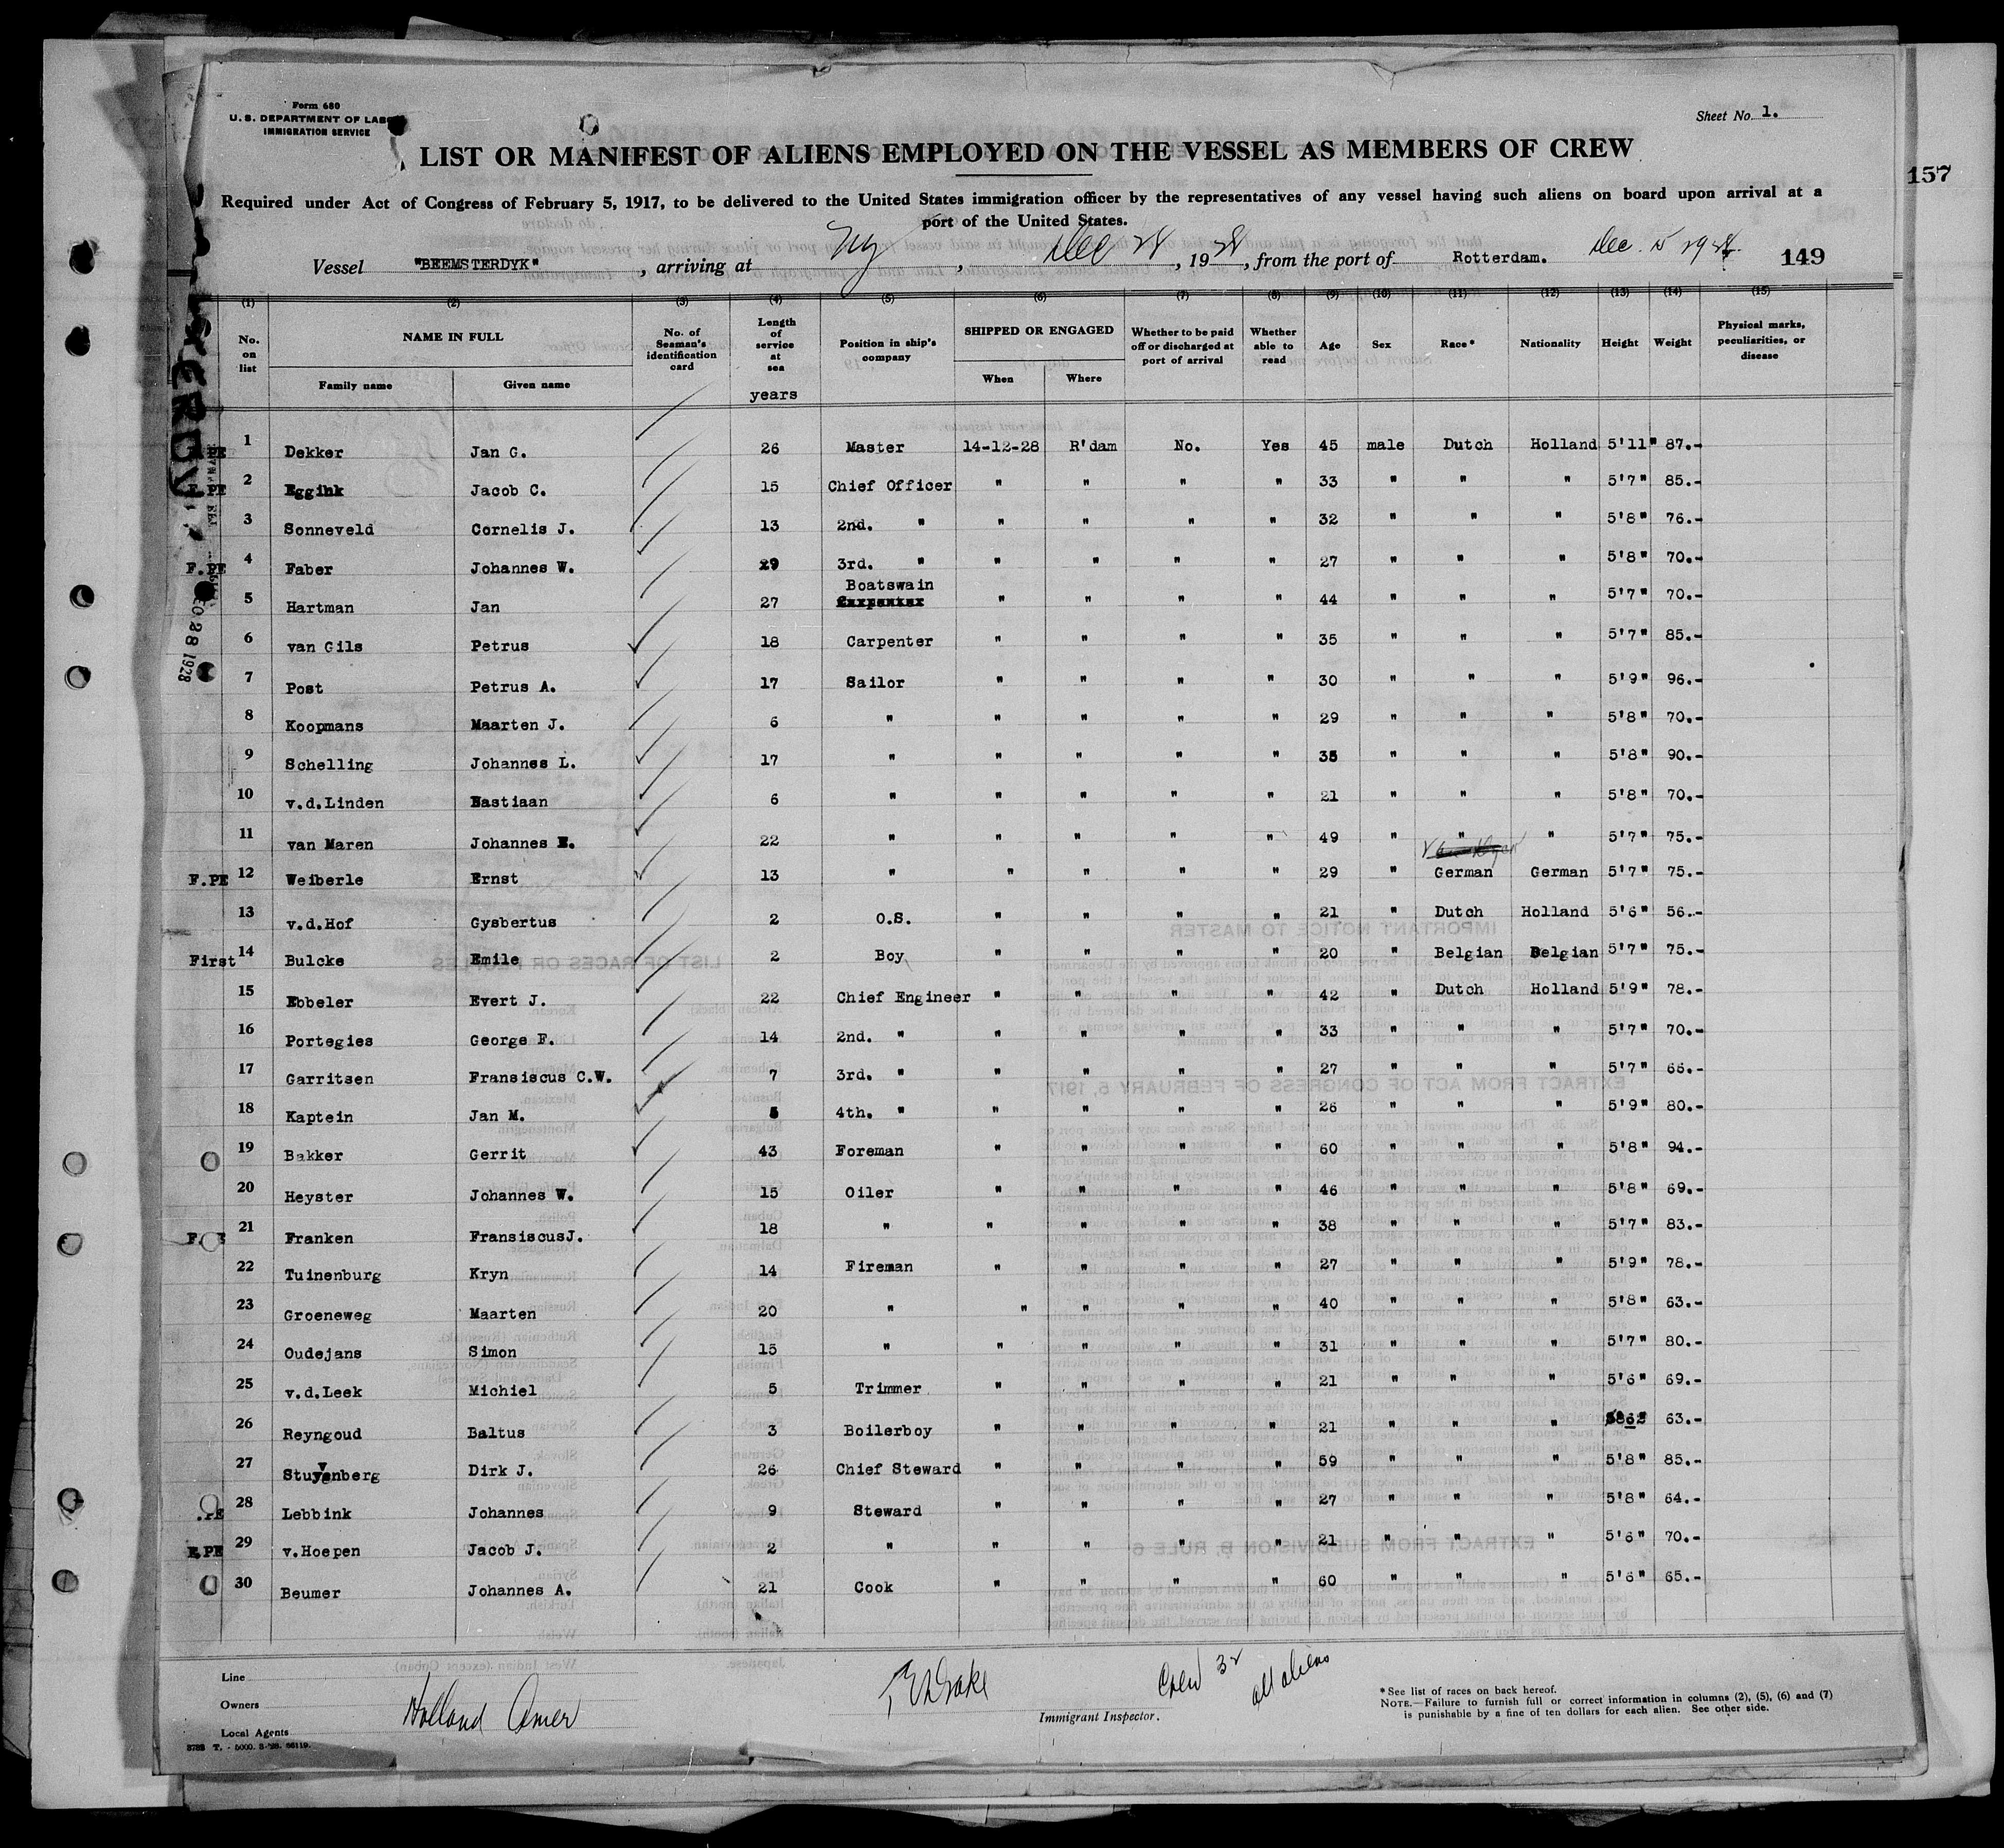 Form 680
U. S. DEPARTMENT OF LABOR
IMMIGRATION SERVICE
Sheet No. 1.
LIST OR MANIFEST OF ALIENS EMPLOYED ON THE VESSEL AS MEMBERS OF CREW
157
Required under Act of Congress of February 5, 1917, to be delivered to the United States immigration officer by the representatives of any vessel having such aliens on board upon arrival at a
port of the United States.
Vessel "BEEMSTERDYK", arriving at Ny, Dec 28, 1928, from the port of Rotterdam. Dec. 15 1928. 149
(1) (2) (3) (4) (5) (6) (7) (8) (9) (10) (11) (12) (13) (14) (15)
No. on list NAME IN FULL Family name Given name No. of Seaman's identification card Length of service at sea years Position in ship's company SHIPPED OR ENGAGED When Where Whether to be paid off or discharged at port of arrival Whether able to read Age Sex Race* Nationality Height Weight Physical marks, peculiarities, or disease
PE 1 Dekker Jan G. 26 Master 14-12-28 R'dam No. Yes 45 male Dutch Holland 5'11" 87.-
F.PE 2 Eggink Jacob C. 15 Chief Officer " " " " 33 " " " 5'7" 85.-
3 Sonneveld Cornelis J. 13 2nd. " " " " " 32 " " " 5'8" 76.-
F.PE 4 Faber Johannes W. 29 3rd. " " " " " 27 " " " 5'8" 70.-
5 Hartman Jan 27 Boatswain Carpenter " " " " 44 " " " 5'7" 70.-
6 van Gils Petrus 18 Carpenter " " " " 35 " " " 5'7" 85.-
7 Post Petrus A. 17 Sailor " " " " 30 " " " 5'9" 96.-
8 Koopmans Maarten J. 6 " " " " " 29 " " " 5'8" 70.-
9 Schelling Johannes L. 17 " " " " " 35 " " " 5'8" 90.-
10 v.d.Linden Bastiaan 6 " " " " " 21 " " " 5'8" 70.-
11 van Maren Johannes E. 22 " " " " " 49 " " " 5'7" 75.-
F.PE 12 Weiberle Ernst 13 " " " " " 29 " German German 5'7" 75.-
13 v.d.Hof Gysbertus 2 O.S. " " " " 21 " Dutch Holland 5'6" 56.-
First 14 Bulcke Emile 2 Boy " " " " 20 " Belgian Belgian 5'7" 75.-
15 Ebbeler Evert J. 22 Chief Engineer " " " " 42 " Dutch Holland 5'9" 78.-
16 Portegies George F. 14 2nd. " " " " " 33 " " " 5'7" 70.-
17 Garritsen Fransiscus C.W. 7 3rd. " " " " " 27 " " " 5'7" 66.-
18 Kaptein Jan M. 5 4th. " " " " " 26 " " " 5'9" 80.-
19 Bakker Gerrit 43 Foreman " " " " 60 " " " 5'8" 94.-
20 Heyster Johannes W. 15 Oiler " " " " 46 " " " 5'8" 69.-
21 Franken FransiscusJ. 18 " " " " " 38 " " " 5'7" 83.-
22 Tuinenburg Kryn 14 Fireman " " " " 27 " " " 5'9" 78.-
23 Groeneweg Maarten 20 " " " " " 40 " " " 5'8" 63.-
24 Oudejans Simon 15 " " " " " 31 " " " 5'7" 80.-
25 v.d.Leek Michiel 5 Trimmer " " " " 21 " " " 5'6" 69.-
26 Reyngoud Baltus 3 Boilerboy " " " " 21 " " " 63.-
27 Stuyvenberg Dirk J. 26 Chief Steward " " " " 59 " " " 5'8" 85.-
.PE 28 Lebbink Johannes 9 Steward " " " " 27 " " " 5'8" 64.-
F.PE 29 v.Hoepen Jacob J. 2 " " " " " 21 " " " 5'6" 70.-
30 Beumer Johannes A. 21 Cook " " " " 60 " " " 5'6" 65.-
DEC 28 1928
Line
Owners Holland Amer
Local Agents
Drake
Immigrant Inspector.
Crew 32
all aliens
*See list of races on back hereof.
NOTE.—Failure to furnish full or correct information in columns (2), (5), (6) and (7)
is punishable by a fine of ten dollars for each alien. See other side.